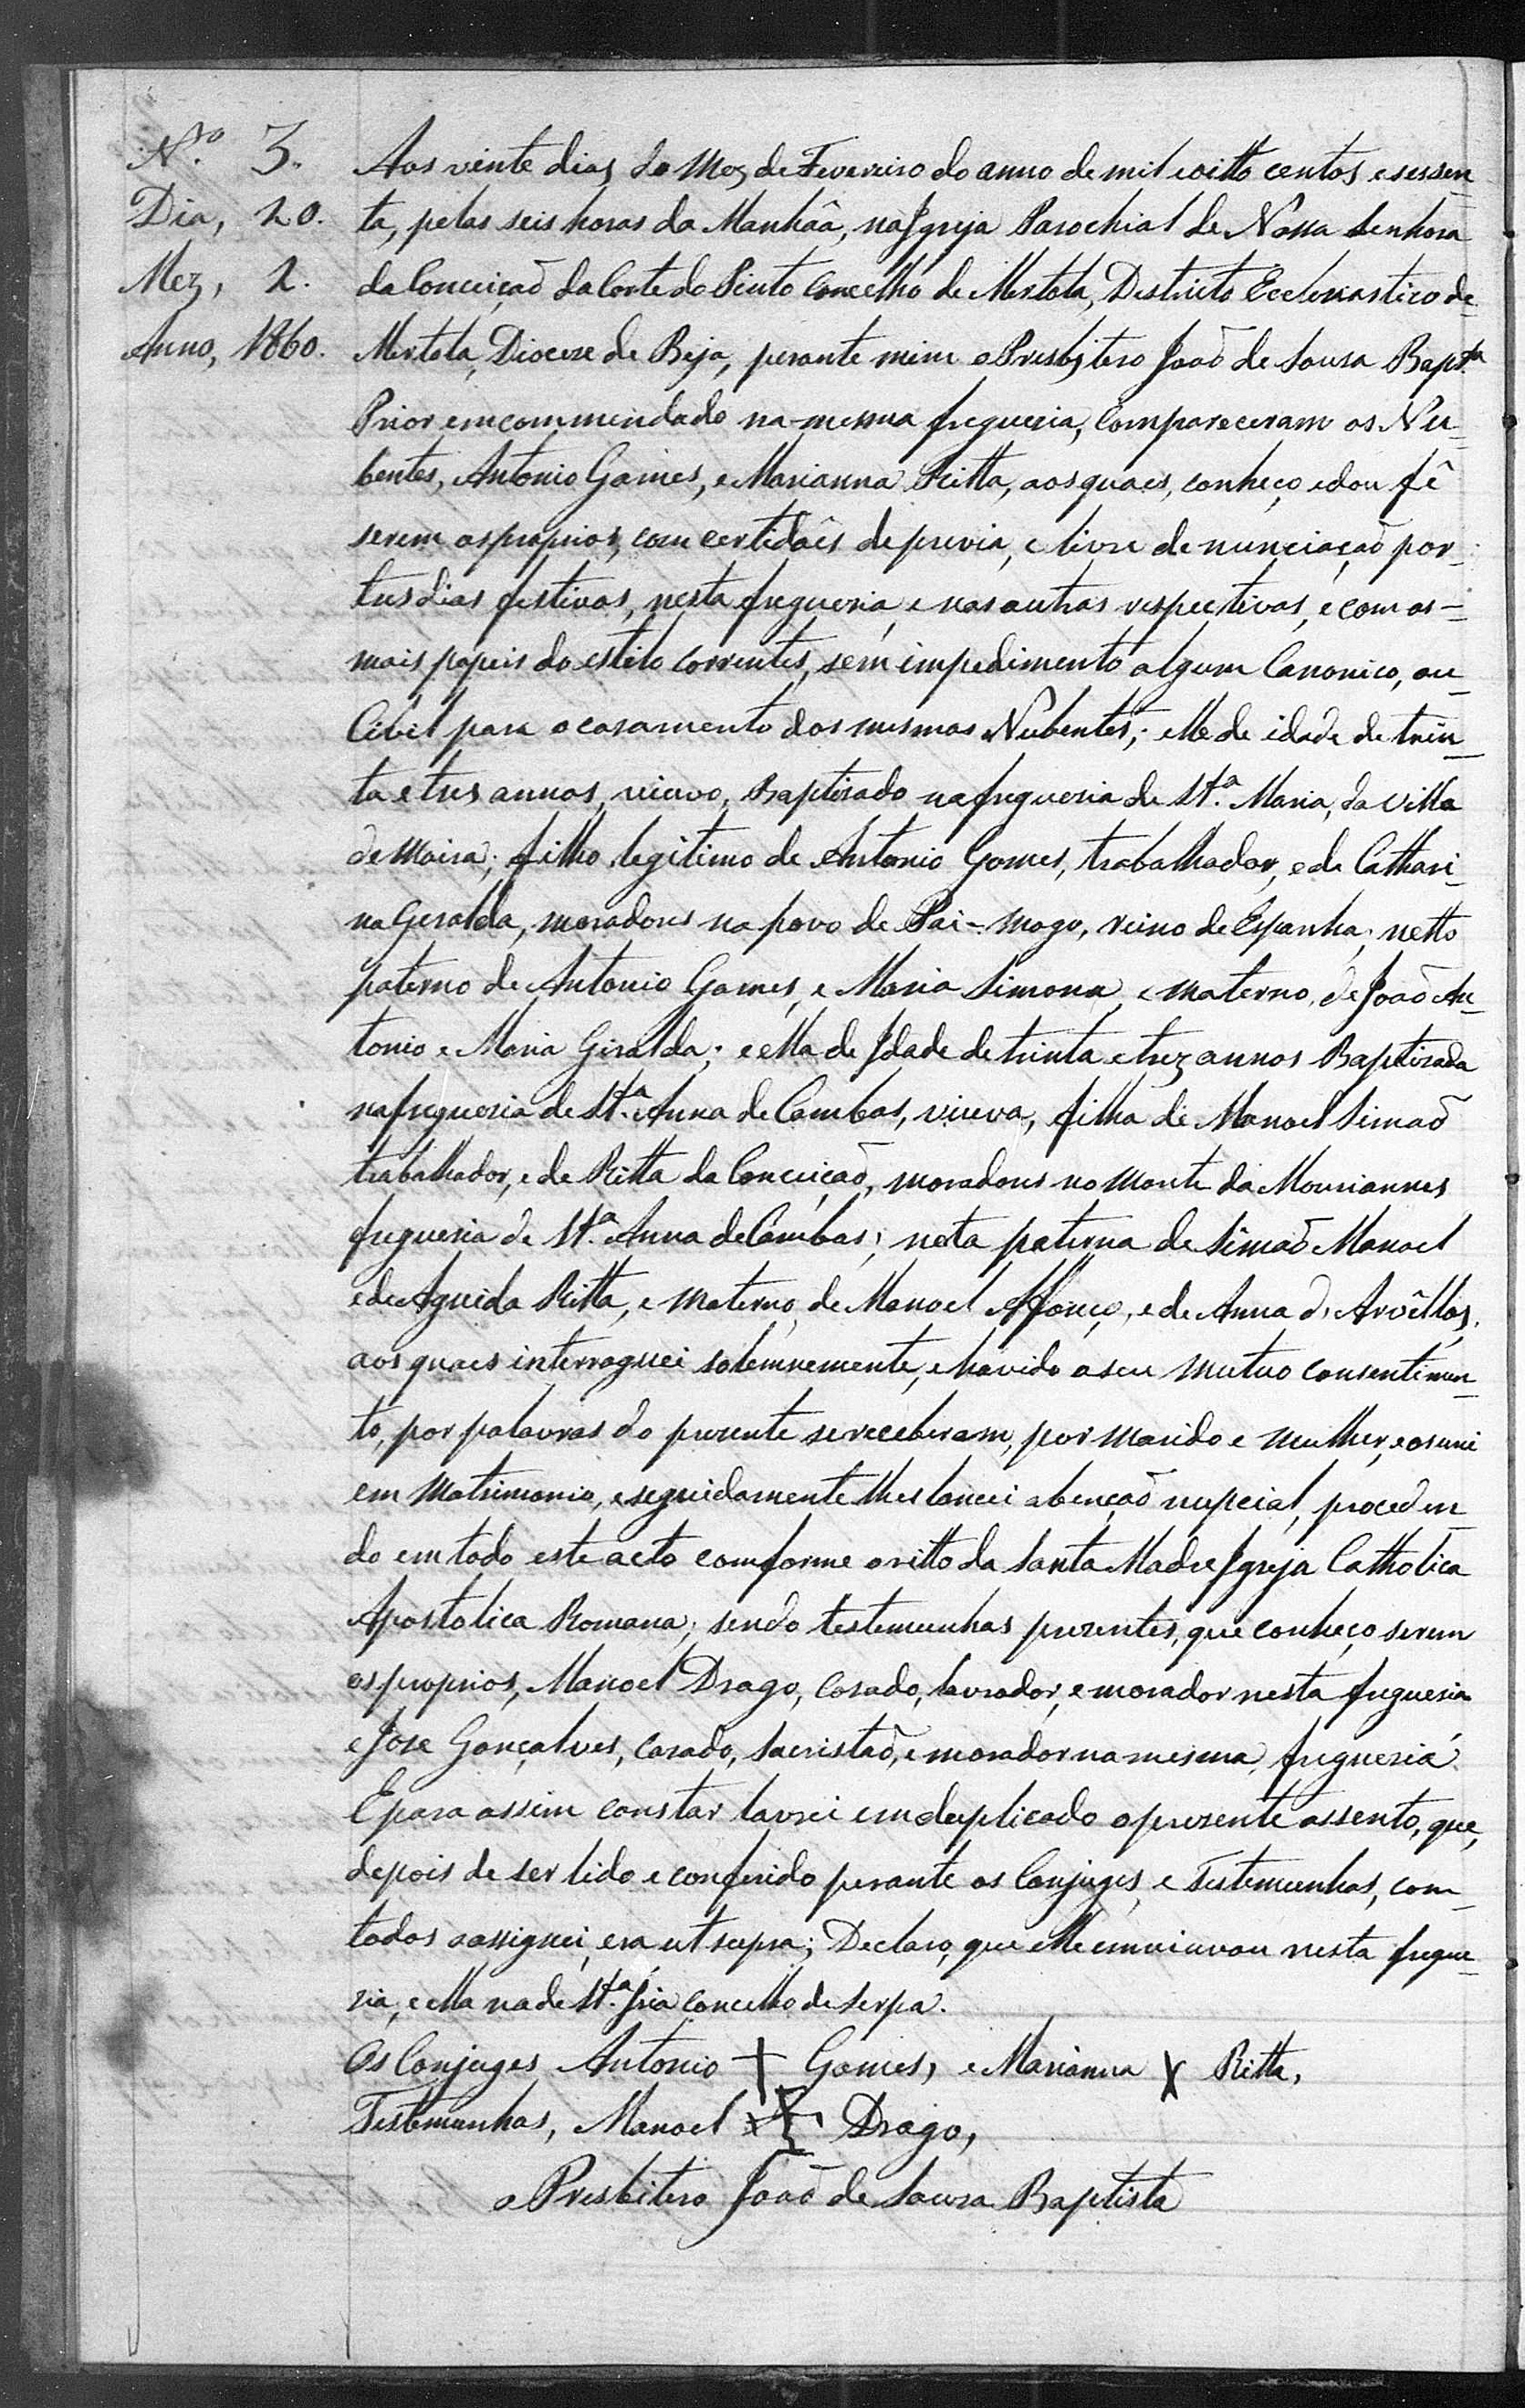 Nº. 3.
Dia, 20.
Mez, 2.
Anno, 1860.
Aos vinte dias do Mez de Fevereiro do anno de mil e oitto centos e sessen-
ta, pelas seis horas da Manhãa, na Igreja Parochial de Nossa Senhora
da Conceiçaõ da Corte do Pinto Concelho de Mertola, Destricto Ecclesiastico de
Mertola, Diocese de Beja, perante mim o Presbitero Joaõ de Sousa Bapt.ª
Prior emcommendado na mesma freguesia, compareceram os Nu-
bentes, Antonio Gomes, e Marianna Ritta, aos quaes, conheço e dou fê
serem os proprios, com certidões de previa, e livre denunciaçaõ por
tres dias festivos, nesta freguesia, e nas outras respectivas, e com os -
mais papeis do estilo correntes, sem impedimento algum Canonico, ou-
Cibil para o casamento dos mesmos Nubentes; elle de idade de trin-
ta e tres annos, viuvo, Baptisado na freguesia de St.ª Maria, da Villa
de Moira; filho legitimo de Antonio Gomes, trabalhador, e de Cathari-
na Geralda, moradores na povo de Pai-mogo, reino de Espanha; netto
paterno de Antonio Gomes, e Maria Simona, e materno, de Joaõ An-
tonio e Maria Giralda; e ella de Idade de trinta e trez annos Baptisada
na freguesia de St.ª Anna de Cambas, viuva, filha de Manoel Simaõ
trabalhador, e de Ritta da Conceiçaõ, moradores no Monte da Mouriannes
freguesia de St.ª Anna de Cambas; neta paterna de Simaõ Manoel
e de Aguida Ritta, e materno, de Manoel Affonço, e de Anna d'Arvêllos,
aos quaes interroguei solemnemente, e havido o seu mutuo consentimen-
to, por palavras do prezente se receberam, por marido e mulher, e os uni
em Matrimonio, e seguidamente lhes lancei a bençaõ nupcial, proceden-
do em todo este acto comforme o ritto da Santa Madre Igreja Catholica
Apostolica Romana; sendo testemunhas prezentes, que conheço serem
os proprios, Manoel Drago, casado, lavrador, e morador nesta freguesia
e Jose Gonçalves, casado, Sacristaõ, e morador na mesma, freguesia.
E para assim constar lavrei em duplicado o prezente assento, que,
depois de ser lido e conferido perante os Conjuges, e Testemunhas, com-
todos o assignei, era ut supra; Declaro, que elle emviuvou nesta fregue-
sia, e ella na de St.ª Iria concelho de Serpa.
Os Conjuges Antonio + Gomes, e Marianna X Ritta,
Testemunhas, Manoel Drago,
o Presbitero Joaõ de Sousa Baptista